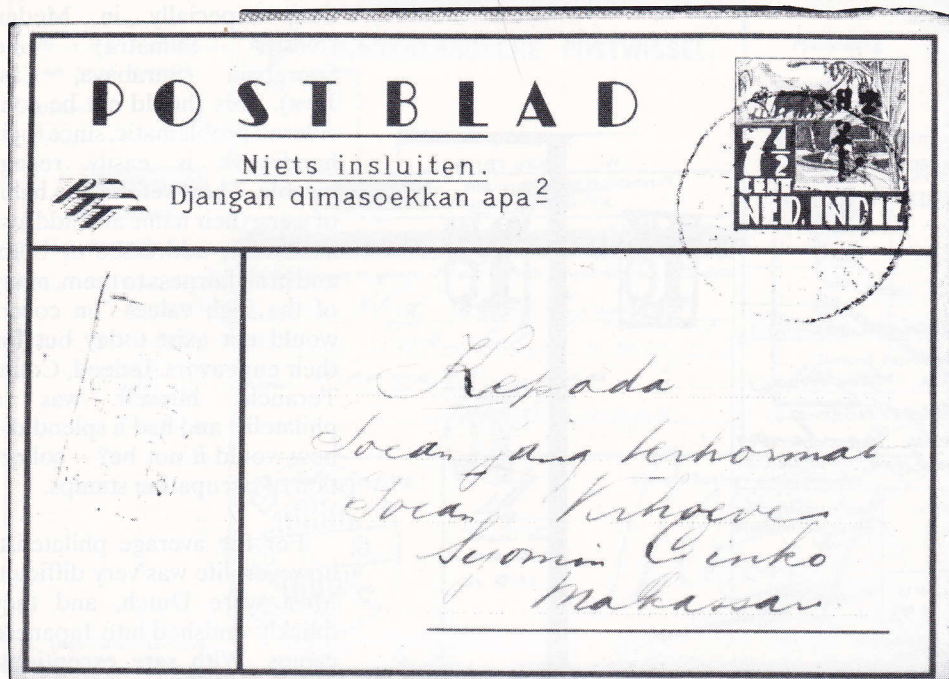 POSTBLAD
Niets insluiten.
Djangan dimasoekkan apa²
7½
CENT
NED. INDIE
Kepada
Toean jang terhormat
Toean Verhoeven
Syomin Ginko
Makassar